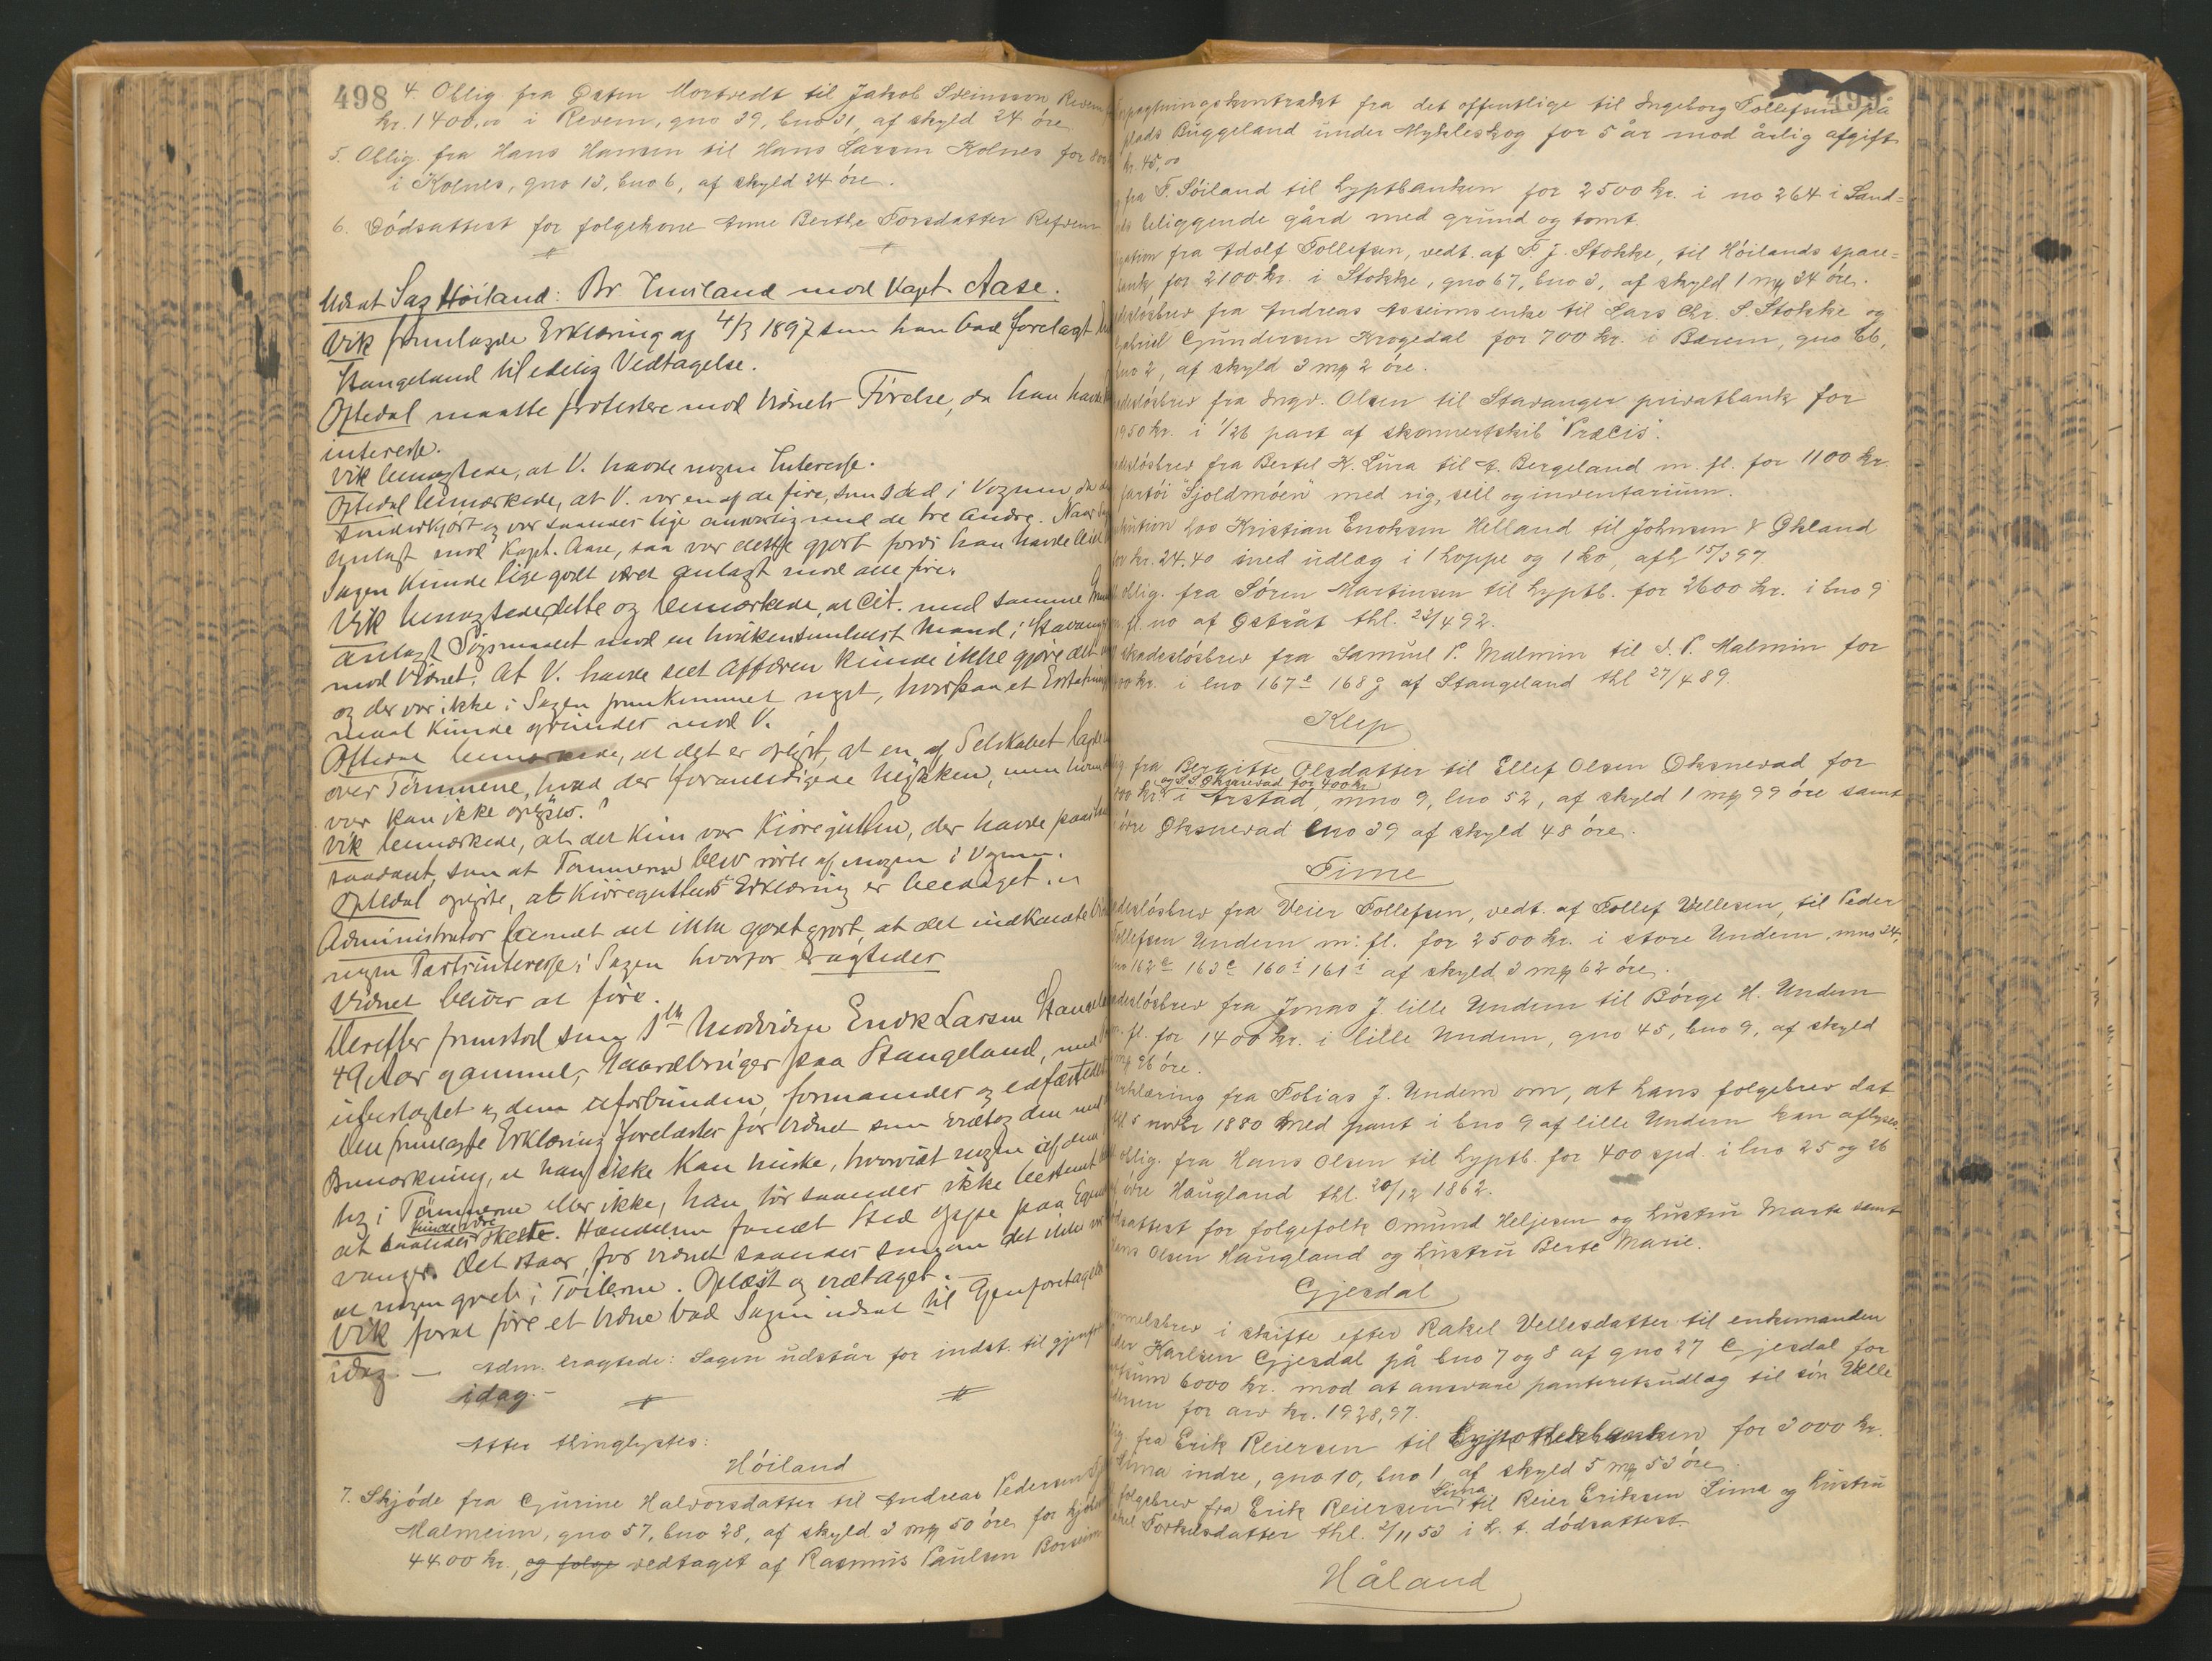 498
4. Oblig. fra Østen Mortvedt til Jakob Sveinsson Revem
kr. 1400,00 i Revem, gno 39, bno 31, af skyld 24 øre
5. Oblig. fra Hans Hansen til Hans Larsen Kolnes for 800
i Kolnes, gno 13, bno 6, af skyld 24 øre.
6. Dódsattest for folgekone Anne Berthe Torsdatter Refvem
Udsat Sag Høiland: Br. mod Kapt. Aase.
Vik fremlagde Erklæring af 4/3 1897 som han bad forelagt
Stangeland til edelig Vedtagelse.
Oftedal maatte protestere mod Vidnets Førelse, da han havde
interesse.
Vik benægtede, at V. havde nogen Interesse.
Oftedal bemærkede, at V. var en af de fire, som sad i Vognen, da
sønderkjørt og var saaledes lige ansvarlig med de tre andre. Naar
anlagt mod Kapt. Aase, saa var dette gjort fordi han havde
Sagen kunde lige godt været anlagt mod alle fire.
Vik benægtede dette og bemærkede, at Cit. med samme
anlagt Søgsmaalet mod en hvilkensomhelst Mand i Stavanger
mod Vidnet. At V. havde seet Affæren kunde ikke gjøre det
og der var ikke i Sagen fremkommet noget, hvorpaa et Erstatnings
maal kunde grundes mod V.
Oftedal bemærkede, at det er oplyst, at en af Selskabet lagde
over Tømmene, hvad der foranledigede Ulykken, men hvem
var kan ikke oplyses.
Vik bemærkede, at det kun var Kjøregutten, der havde paastaaet
saadant, som at Tømmerne blev rørte af nogen i Vognen.
Oftedal oplyste, at Kjøreguttens Erklæring er beediget.
Administrator fandt det ikke godtgjort, at det indkaldte Vidne
nogen Partsinteresse i Sagen hvorfor eragtedes
Vidnet bliver at føre.
Derefter fremstod som 1ste Modvidne Enok Larsen Stangeland
49 Aar gammel, Gaardbruger paa Stangeland, med
ubeslægtet og dem uforbunden, formanedes og edfæstedes
Den fremlagte Erklæring forelæstes for Vidnet som vedtog den med
Bemærkning, at han ikke kan huske, hvorvidt nogen af dem
tog i Tømmerne eller ikke, han tør saaledes ikke bestemt
at saaledes kunde være skeet. Hændelsen fandt Sted oppe paa Egenes
vanger. Det staar for Vidnet saaledes som om det ikke var
at nogen greb i Tøilerne. Oplæst og vedtaget.
Vik forat føre et Vidne bad Sagen udsat til Gjenforetagelse
idag. — Adm. eragtede: Sagen udstår for indst. til gjenforet
idag.-
Atter thinglystes:
Hóiland
7. Skjóde fra Gurine Halvorsdatter til Andreas Pedersen
Malmeim, gno 57, bno 28, af skyld 3 mrk 50 øre, for kjóbesum
4400 kr., og folge vedtaget af Rasmus Paulsen Borseim
499
pagtningskontrakt fra det offentlige til Ingeborg Tollefsen på
plads Buggeland under Mykleskog for 5 år mod årlig afgift
kr. 45,00
fra T. Sóiland til hyptbanken for 2500 kr. i no 264 i Sand=
nds beliggende gård med grund og tomt.
gation fra Adolf Tollefsen, vedt. af T. J. Stokke, til Hóilands spare=
bank for 2100 kr. i Stokke, gno 67, bno 3, af skyld 1 mrk 24 øre.
desløsbrev fra Andreas Asseims enke til Lars Chr. S. Stokke og
Gabriel Gundersen Krogedal for 700 kr. i Bærem, gno 66,
bno 2, af skyld 3 mrk 2 øre.
desløsbrev fra Ingv. Olsen til Stavanger privatbank for
1950 kr. i 1/26 part af skonnertskib "Præcis".
desløsbrev fra Bertel K. Lura til G. Bergeland m. fl. for 1100 kr
fartói "Sjoldmóen" med rig, seil og inventarium.
ekution hos Kristian Enoksen Helland til Johnsen & Økland
for kr. 24.40 med udlæg i 1 hoppe og 1 ko, afh. 15/3 97
oblig. fra Sóren Martinsen til hyptb. for 2600 kr. i bno 9
m. fl. no af Østråt thl. 22/4 92.
skadeslósbrev fra Samuel P. Malmin til S. P. Malmin for
00 kr. i bno 167e 168g af Stangeland thl 27/4 89.
Klep
fra Bergitte Olsdatter til Ellef Olsen Øksnevad for
og S S Øksnevad for 400 kr
00 kr. i Arstad, mno 9, bno 52, af skyld 1 mrk 99 øre samt
óvre Øksnevad bno 39 af skyld 48 øre.
Time
desløsbrev fra Veier Tollefsen, vedt. af Tollef Vellesen, til Peder
Tollefsen Undem m. fl. for 2500 kr. i store Undem, mno 34,
bno 162e 163e 160i 161i af skyld 3 mrk 62 øre.
desløsbrev fra Jonas J. lille Undem til Børge H. Undem
m. fl. for 1400 kr. i lille Undem, gno 45, bno 9, af skyld
mrk 96 øre.
erklæring fra Tobias J. Undem om, at hans folgebrev dat
thl 5 novbr 1880 med pant i bno 9 af lille Undem kan aflyses.
oblig. fra Hans Olsen til hyptb. for 400 spd. i bno 25 og 26
øvre Haugland thl. 20/12 1862.
ódsattest for folgefolk Omund Heljesen og hustru Marta samt
Hans Olsen Haugland og hustru Berte Marie.
Gjesdal
emmelsbrev i skifte efter Rakel Vellesdatter til enkemanden
der Karlsen Gjesdal på bno 7 og 8 af gno 27 Gjesdal for
ntsum 6000 kr. mod at ansvare panteretsudlæg til són Velle
dersen for arv kr. 1928,97.
ig. fra Erik Reiersen til Hypothekbanken for 3000 kr.
Lima indre, gno 10, bno 1, af skyld 5 mrk 53 øre.
folgebrev fra Erik Reiersen Lima til Reier Eriksen Lima og hustru
akel Torkelsdatter thl. 2/11 53 i h. t. dódsattest.
Håland